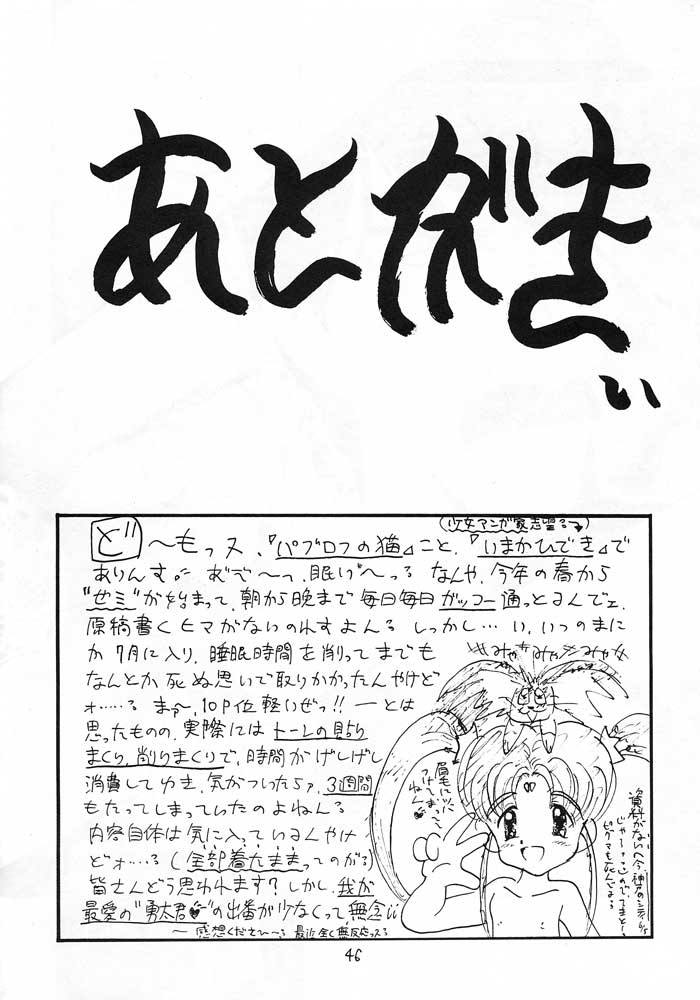 あとがき
い
(少女マンガ家志望る→)
ど〜もっス、『パブロフの猫』こと、『いまかひでき』で
ありんす。 おで〜っ、眠い〜っる なんや、今年の春から
"ゼミ"が始まって、朝から晩まで毎日毎日ガッコー通っとるんでェ、
原稿書くヒマがないのれすよんる しっかし…い、いつのまに
か7月に入り、睡眠時間を削ってまでも
なんとか死ぬ思いで取りかかったんやけど
ォ……る まァ〜、10P位軽いぜっ!! ーとは
思ったものの、実際にはトーンの貼り
まくり、削りまくりで、時間がげしげし
消費してゆき、気がついたらァ、3週間
もたってしまっていたのよねんる
内容自体は気に入っているんやけ
どォ…る(全部着たままってのがる)
皆さんどう思われます?しかし、我が
最愛の"勇太君"の出番が少なくって、無念
〜感想くださひ〜る 最近全く無反応っスる
みゃみゃみゃみゃ
眉毛に
つけてしまって
ねん
資料がない
46